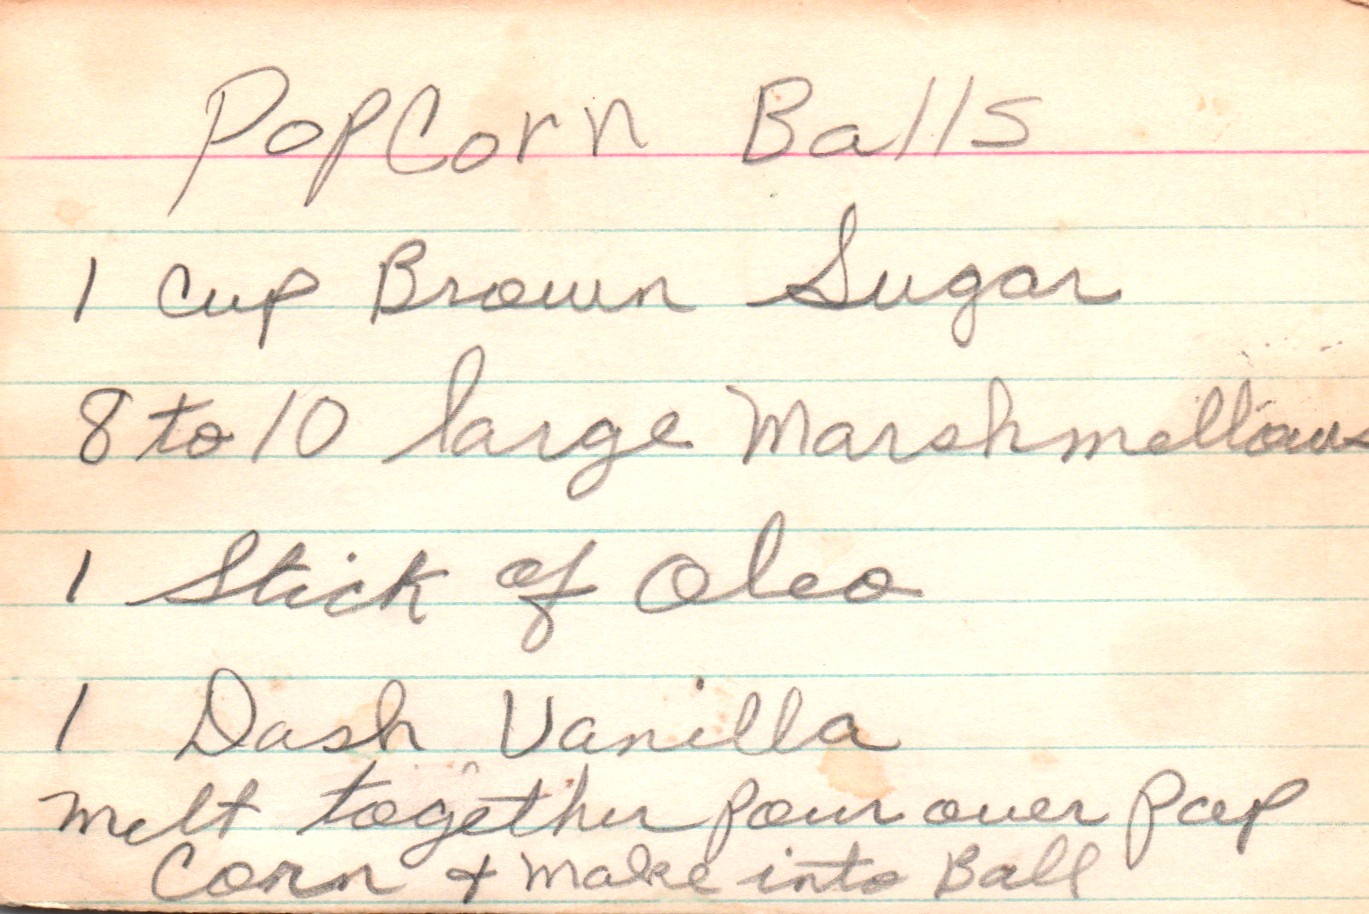 PopCorn Balls
1 Cup Brown Sugar
8 to 10 large Marshmellows
1 Stick of Oleo
1 Dash Vanilla
Melt together pour over Pop
Corn + Make into Ball